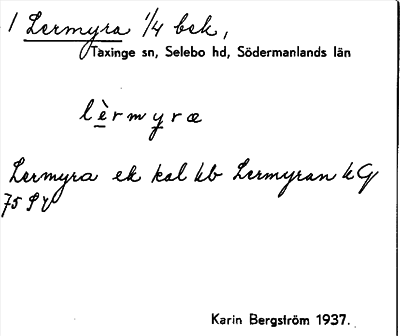 1 Lermyra 1/4 bek,
Taxinge sn, Selebo hd, Södermanlands län
lèrmyræ
Lermyra ek kal kb Lermyran k G
75
Karin Bergström 1937.